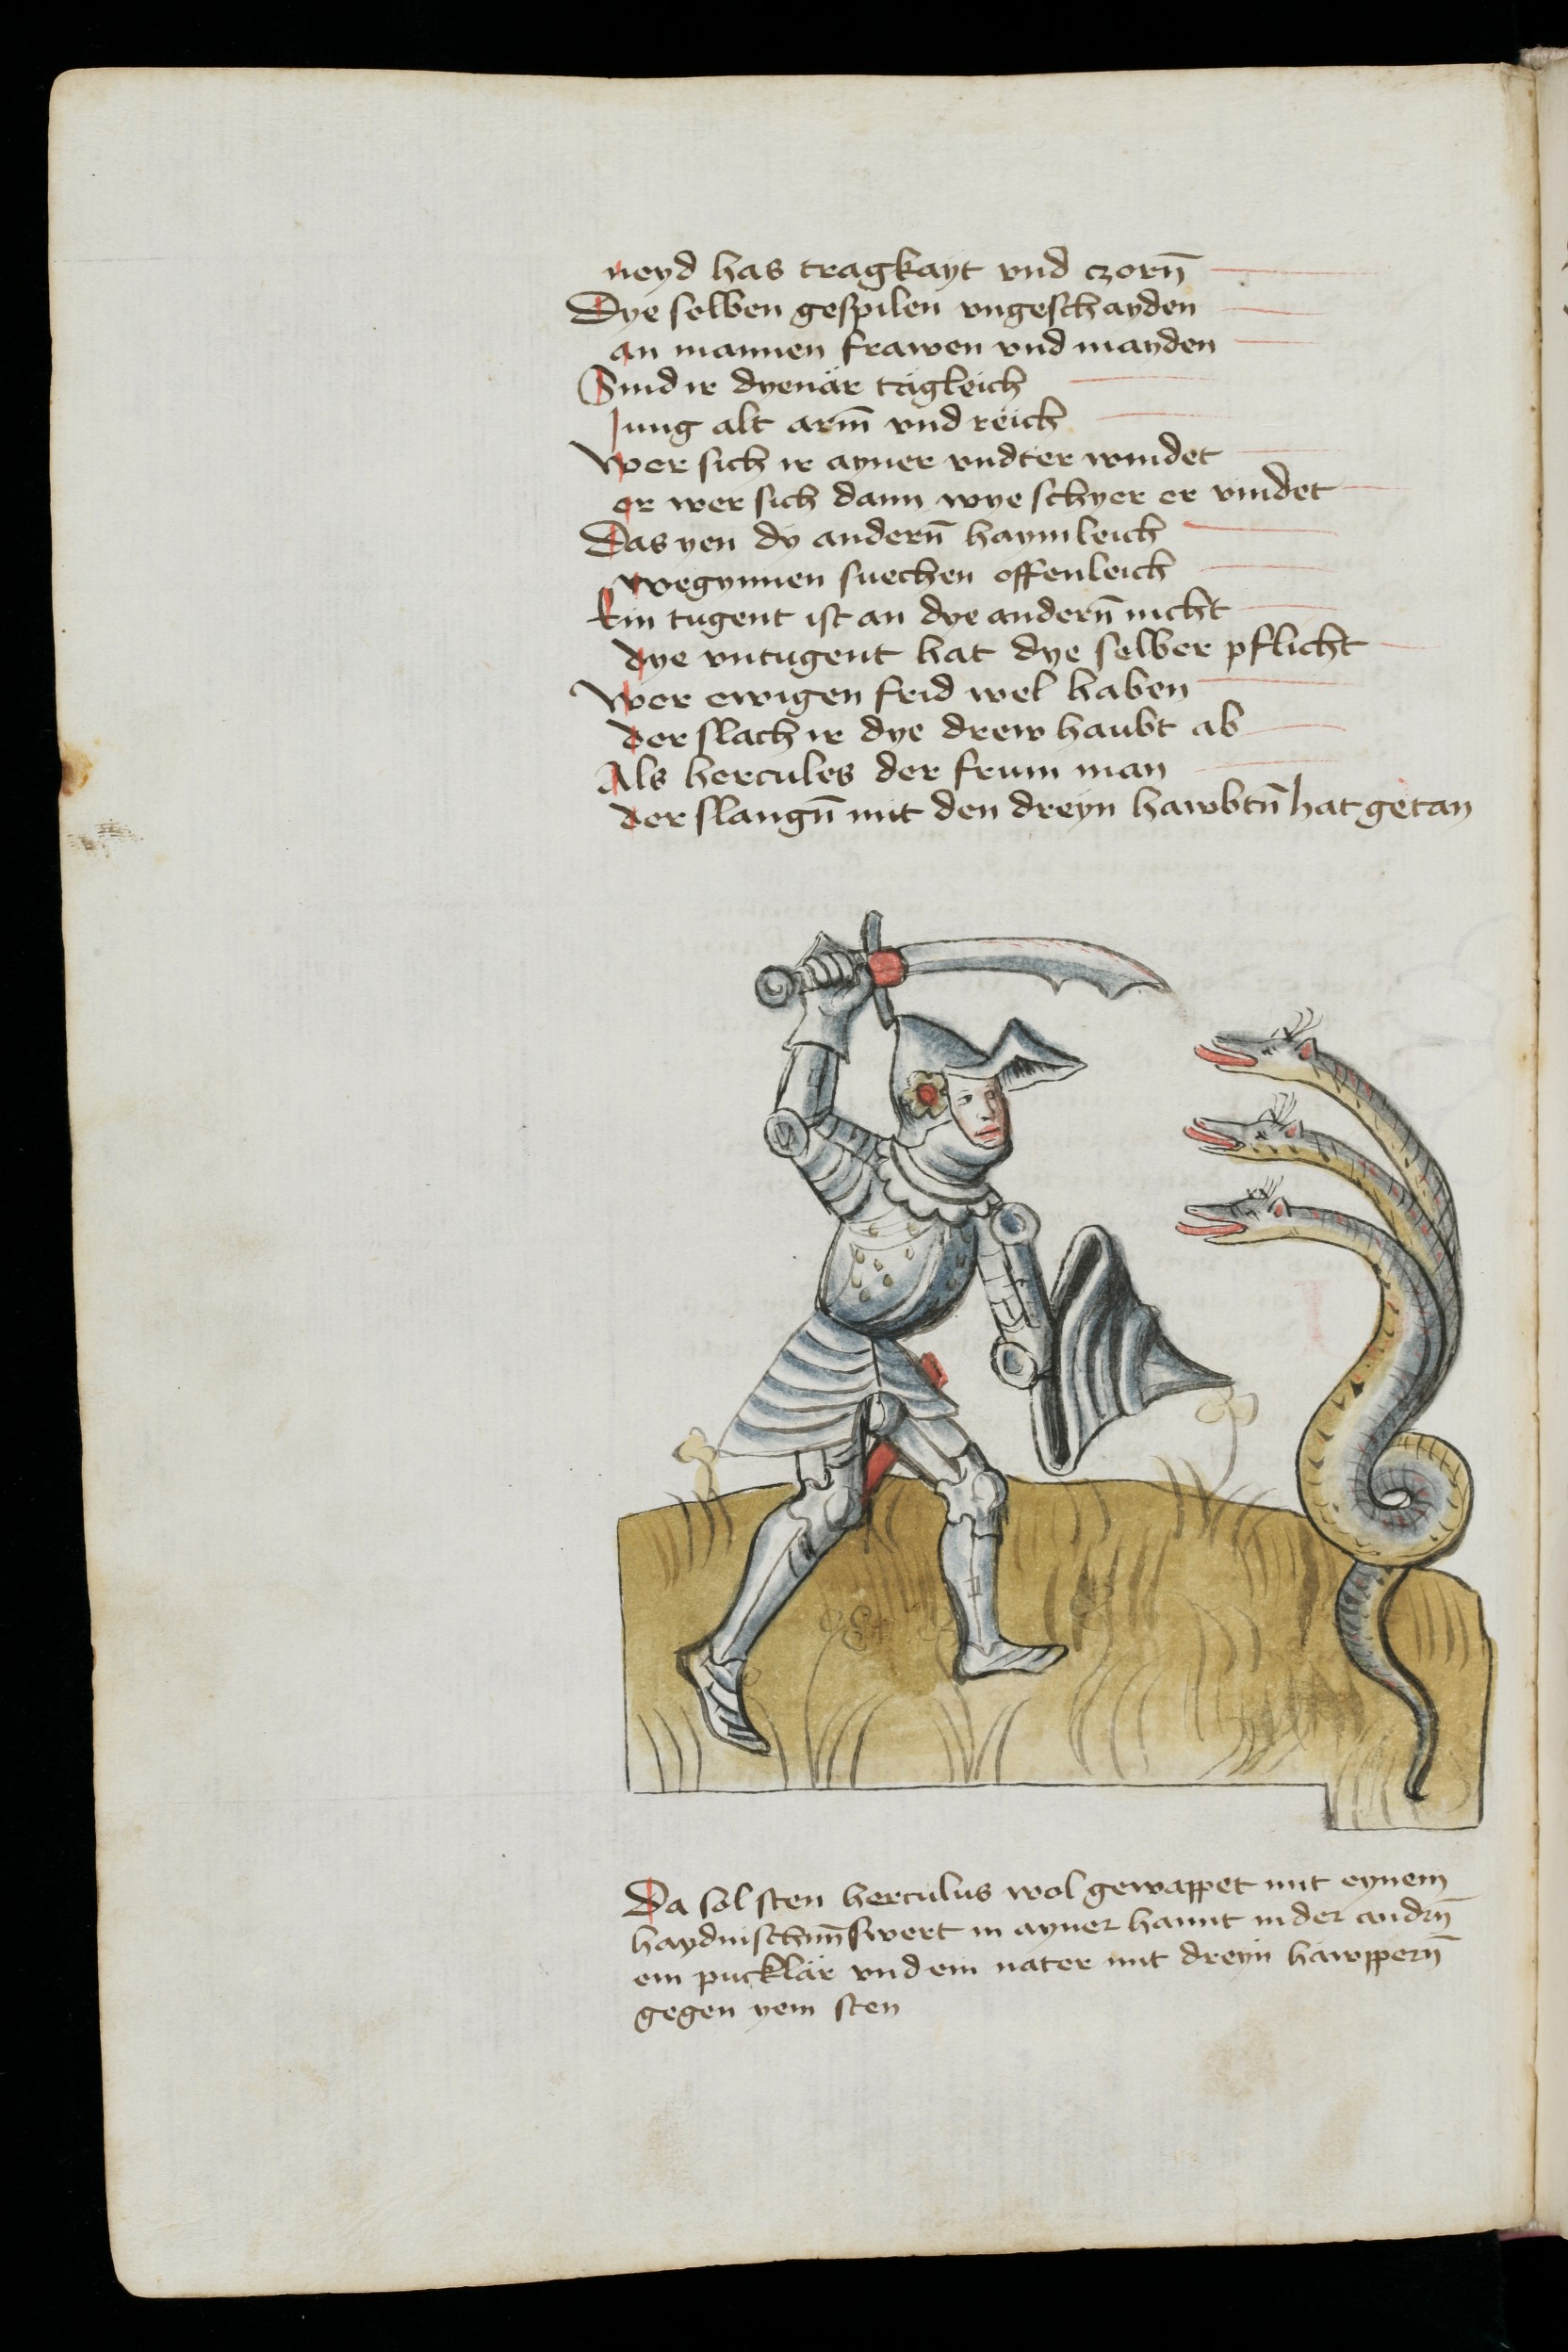 neyd has tragkayt vnd czorn̄
Dye selben gespilen vngeschayden
an mannen frawen vnd mayden
Sind ir dyenär tägleich
Jung alt arm̄ vnd reich
Wer sich ir ayner vndter windet
er wer sich dann wye schyer er vindet
Das yen dy andern̄ haymleich
wegynnen suechen offenleich
Ein tugent ist an dye andern̄ nicht
dye vntugent hat dye selber pflicht
Wer ewigen frid wel haben
der slach ir dye drew haubt ab
Als hercules der frum man
der slangn̄ mit den dreyn hawbtn̄ hat getan
Da sol sten herculus wol gewappet mit eynem
haydnischnn̄ swert in ayner hannt in der andrn̄
ein pucklär vnd ein nater mit dreyn häwppern̄
gegen yem sten